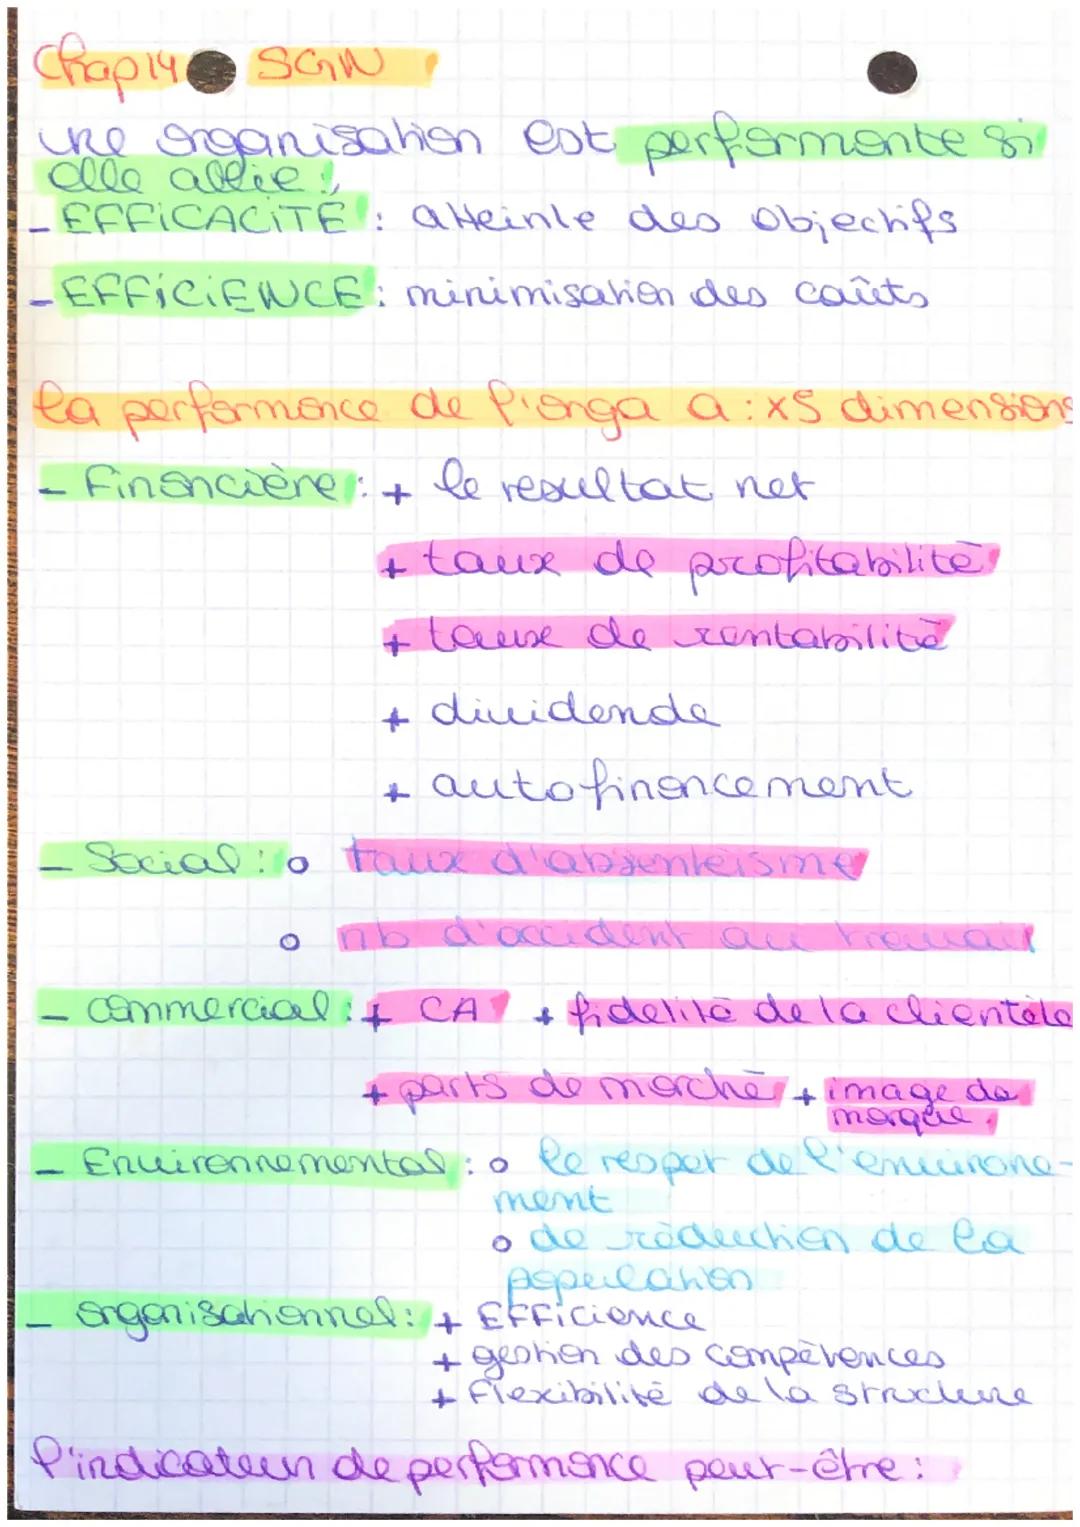 Chap 14 SGN
une organisation est performante si
elle allie :
- EFFICACITÉ : atteinte des objectifs
- EFFICIENCE : minimisation des coûts
la performance de l'orga a : x5 dimensions
- Financière : + le resultat net
+ taux de profitabilité
+ taux de rentabilité
+ dividende
+ autofinancement
- Social : o taux d'absenteisme
o nb d'accident au travail
- commercial : + CA + fidelité de la clientèle
+ parts de marché + image de
marque.
- Environnemental : o le respet de l'environe-
ment
o de réduction de la
population
- organisationnel : + EFFicience
+ gestion des compétences
+ Flexibilité de la structure
l'indicateur de performance peut-être :